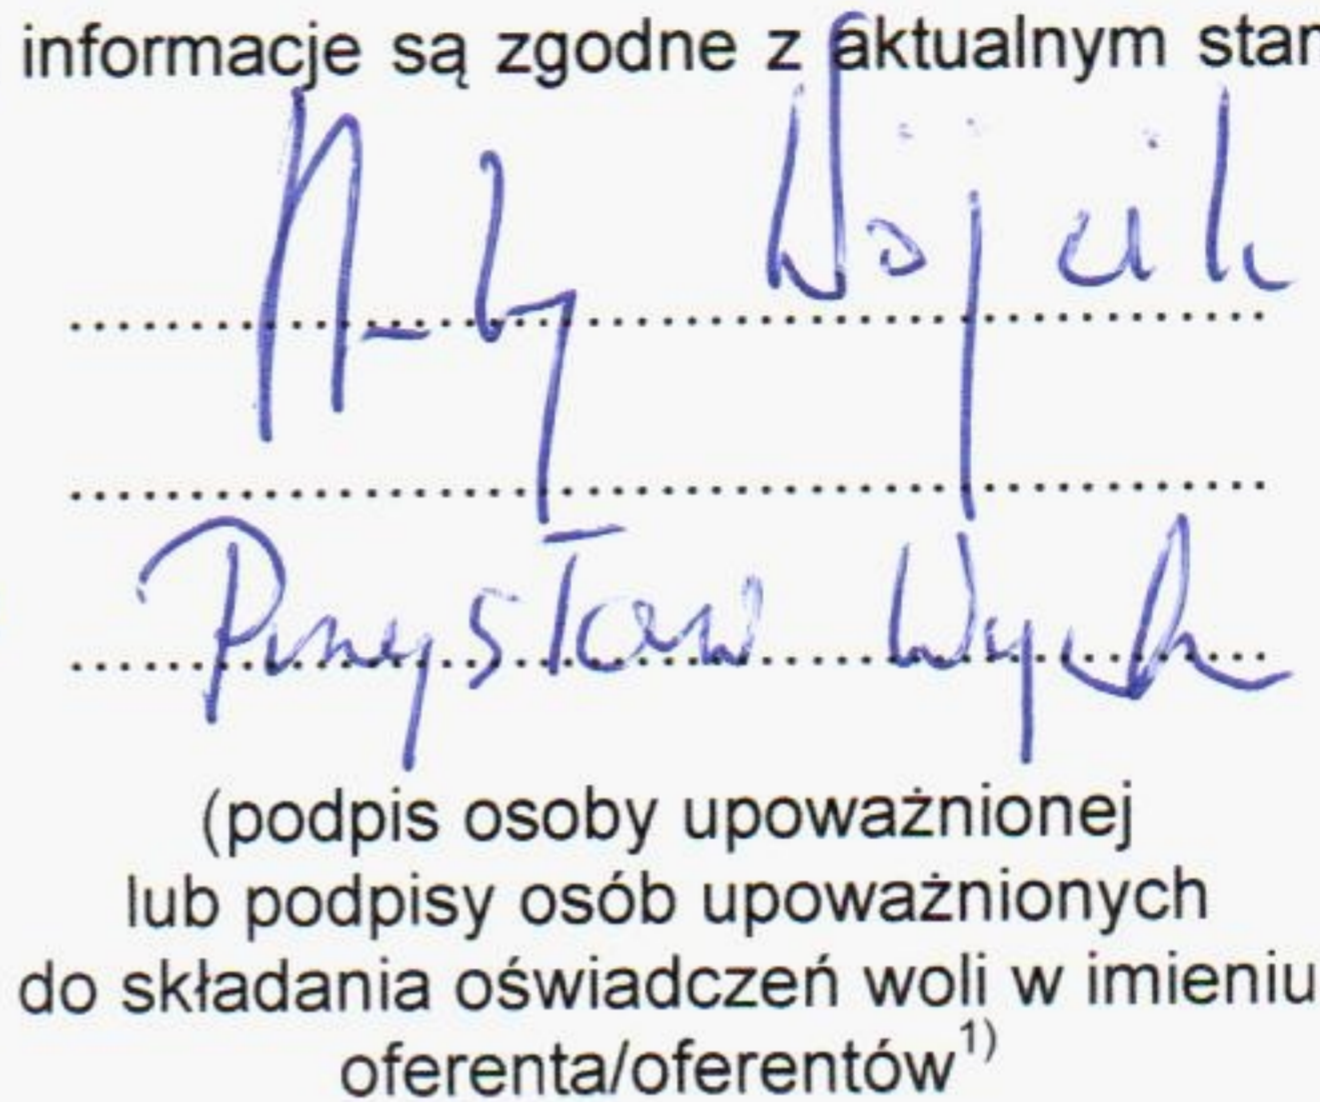 informacje są zgodne z aktualnym stan
Wójcik
Przysław Wych
(podpis osoby upoważnionej
lub podpisy osób upoważnionych
do składania oświadczeń woli w imieniu
oferenta/oferentów¹⁾